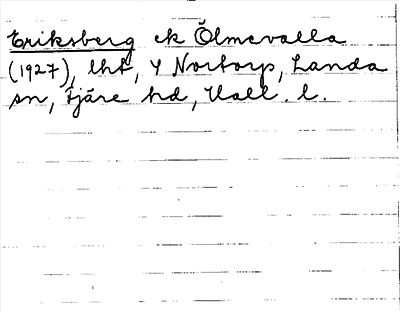 Eriksberg ek Ölmevalla
(1927), lht, Y Nortorp, Landa
sn, Fjäre hd, Hall. l.